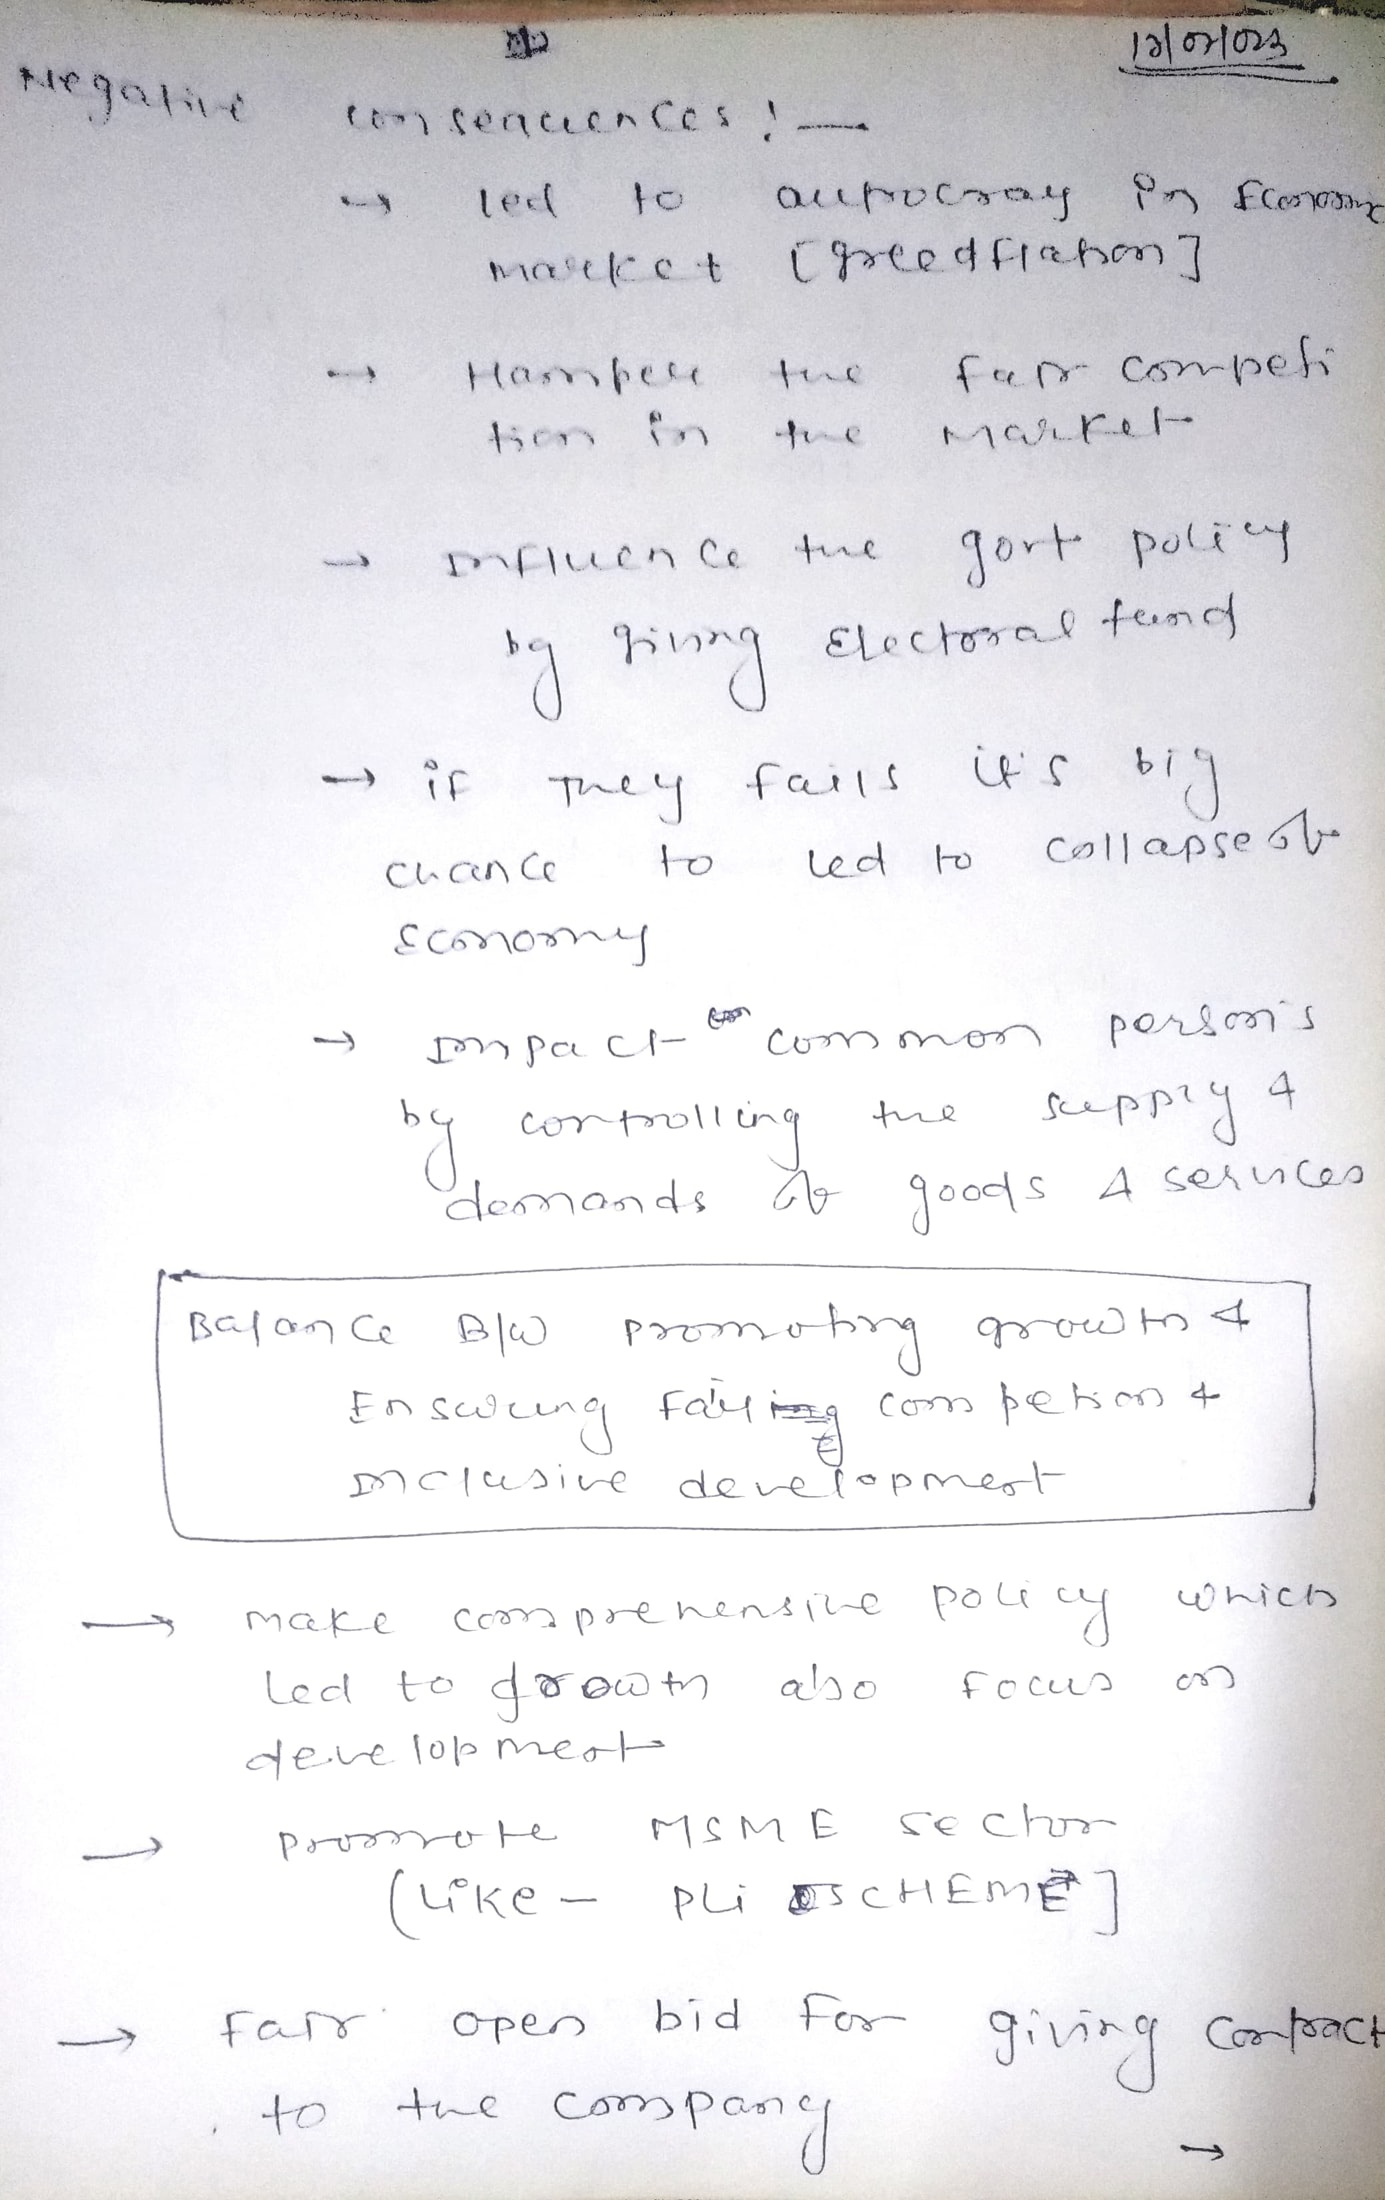 12/02/023
Negative consequences :-
→ led to autocray in Economic
market [greedflation]
→ Hamper the fair competi
tion in the market
→ Influence the govt policy
by giving Electoral fund
→ if They fails it's big
chance to led to collapse of
Economy
→ Impact on common person's
by controlling the supply &
demands of goods & services
Balance B/w promoting growth &
Ensuring fair competion &
inclusive development
→ make comprehensive policy which
led to growth also focus on
development
→ promote MSME sector
(Like - PLI SCHEME]
→ fair open bid for giving contract
to the company
→